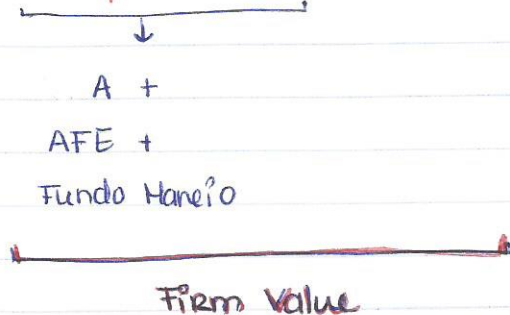 A +
AFE +
Fundo Maneio
Firm Value